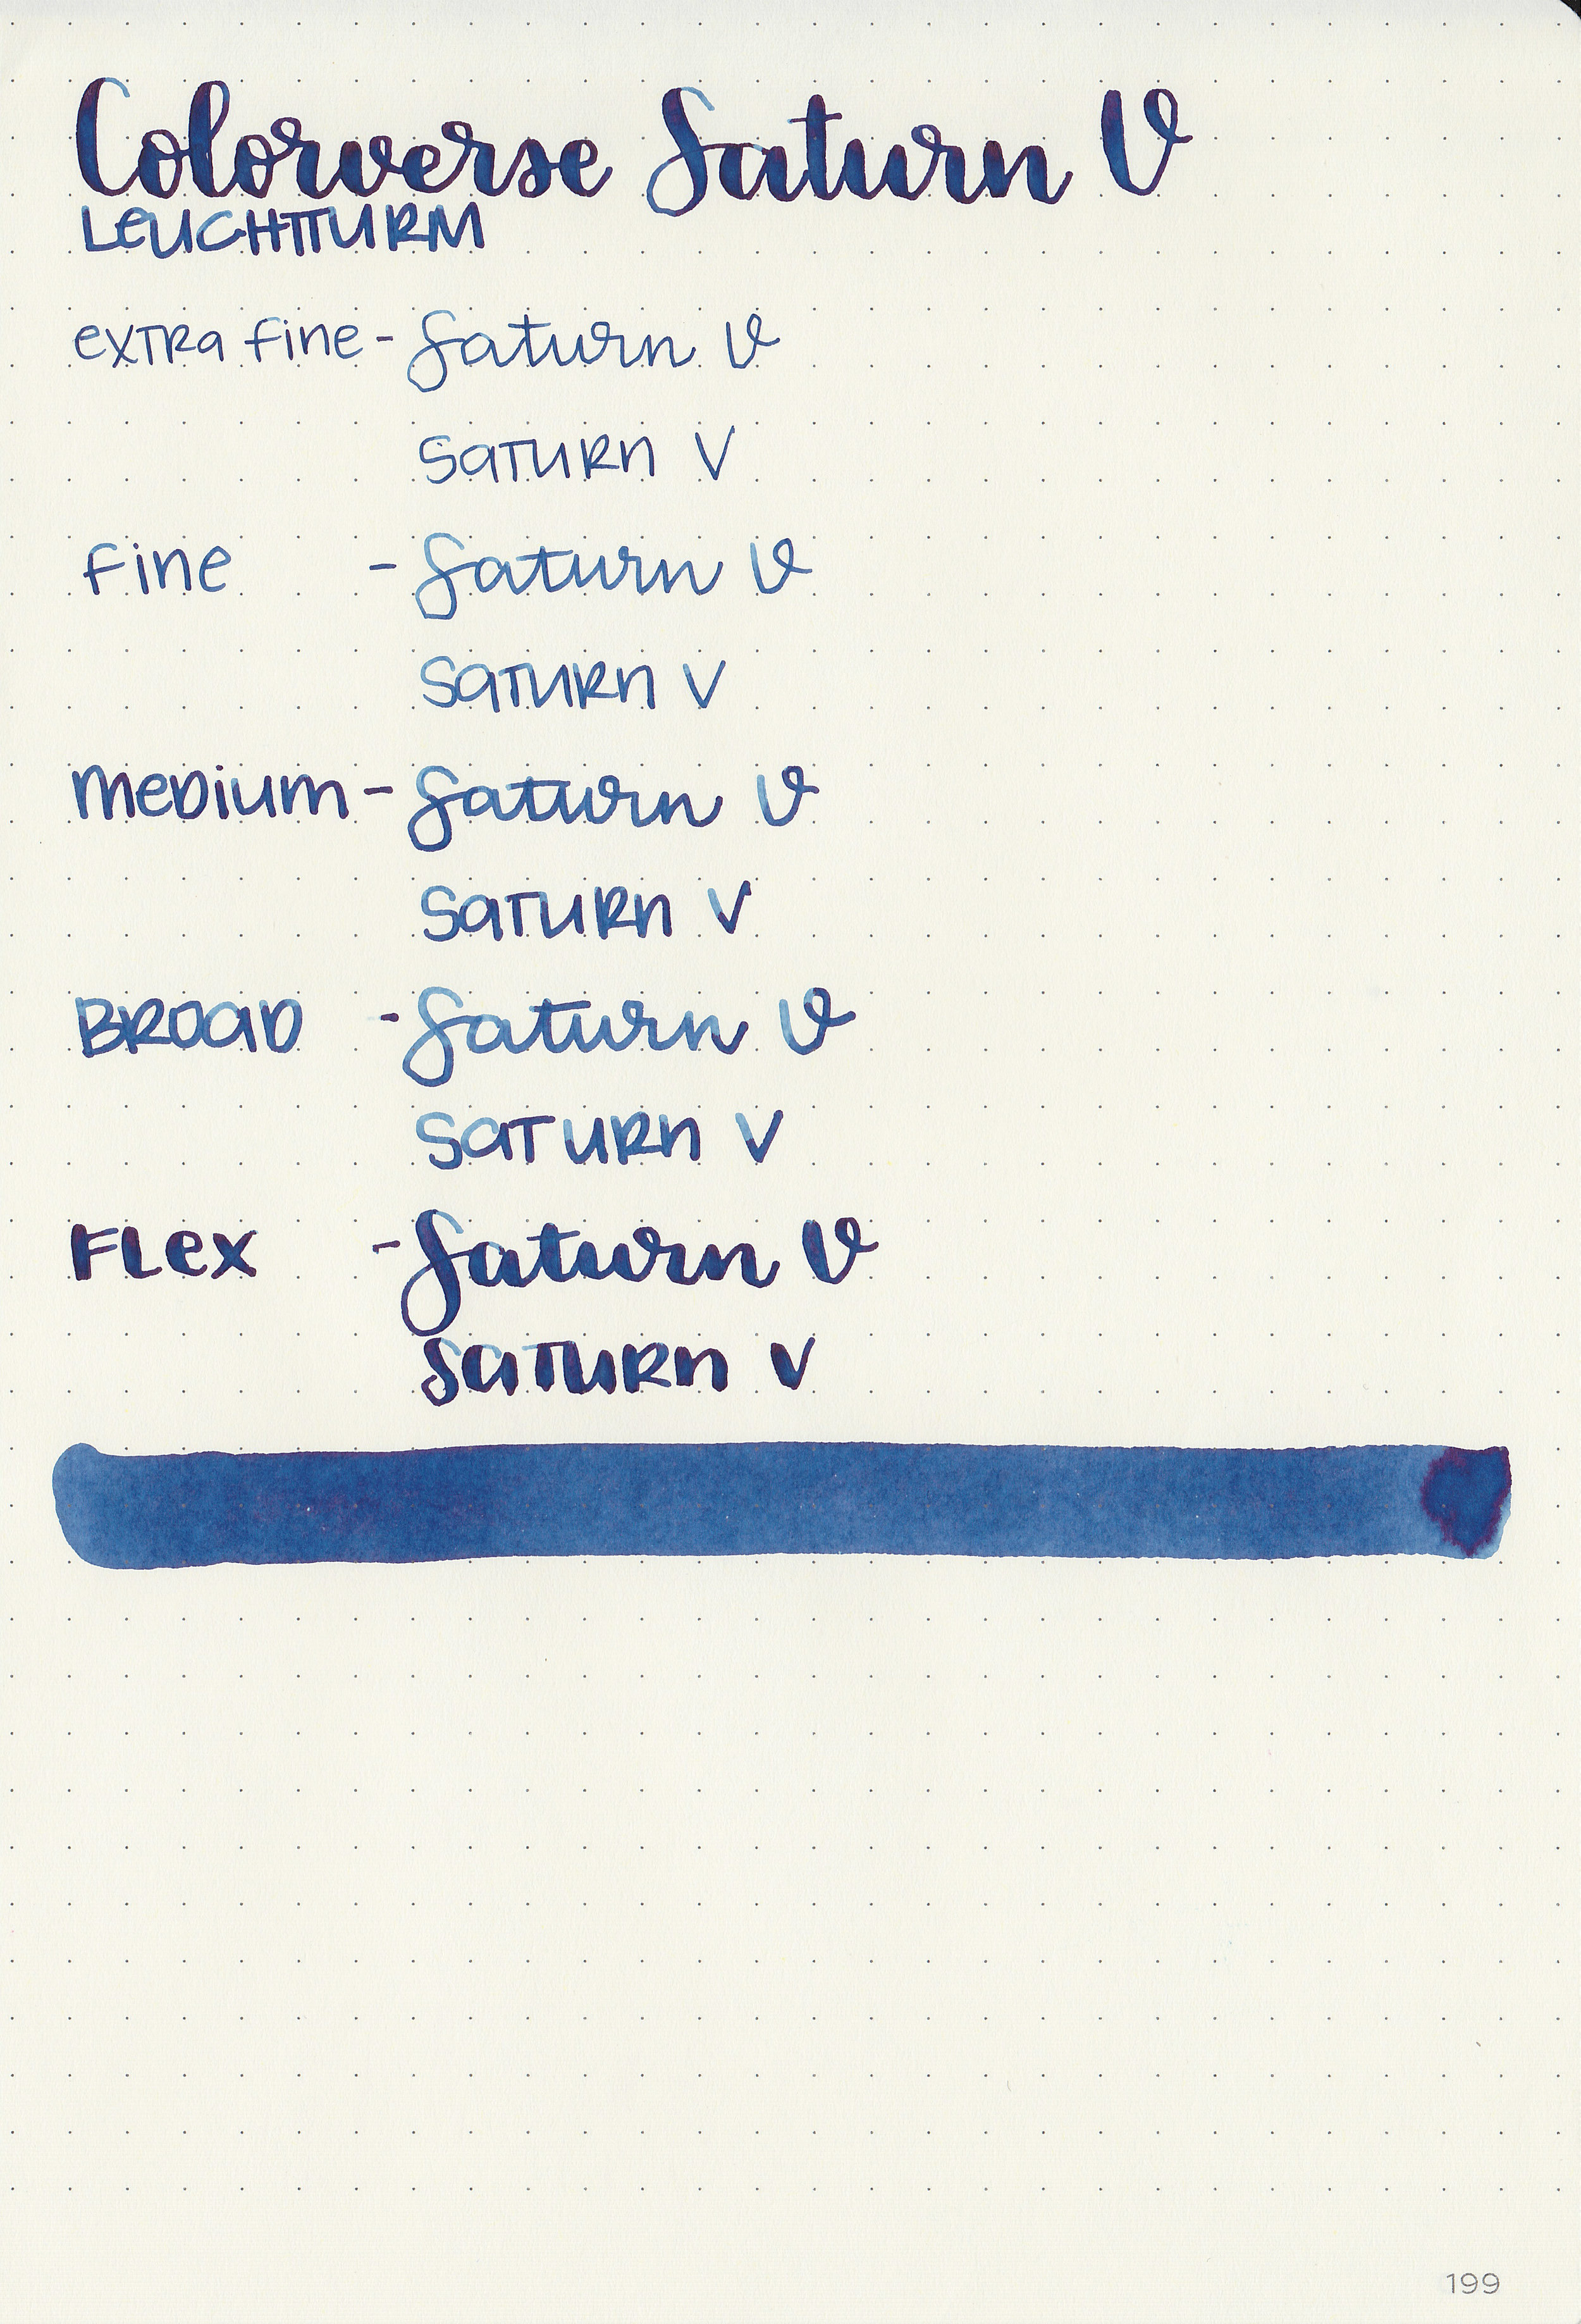 Colorverse Saturn V
LEUCHTTURM
extra fine - Saturn V
Saturn V
fine - Saturn V
Saturn V
medium - Saturn V
Saturn V
Broad - Saturn V
Saturn V
Flex - Saturn V
Saturn V
199